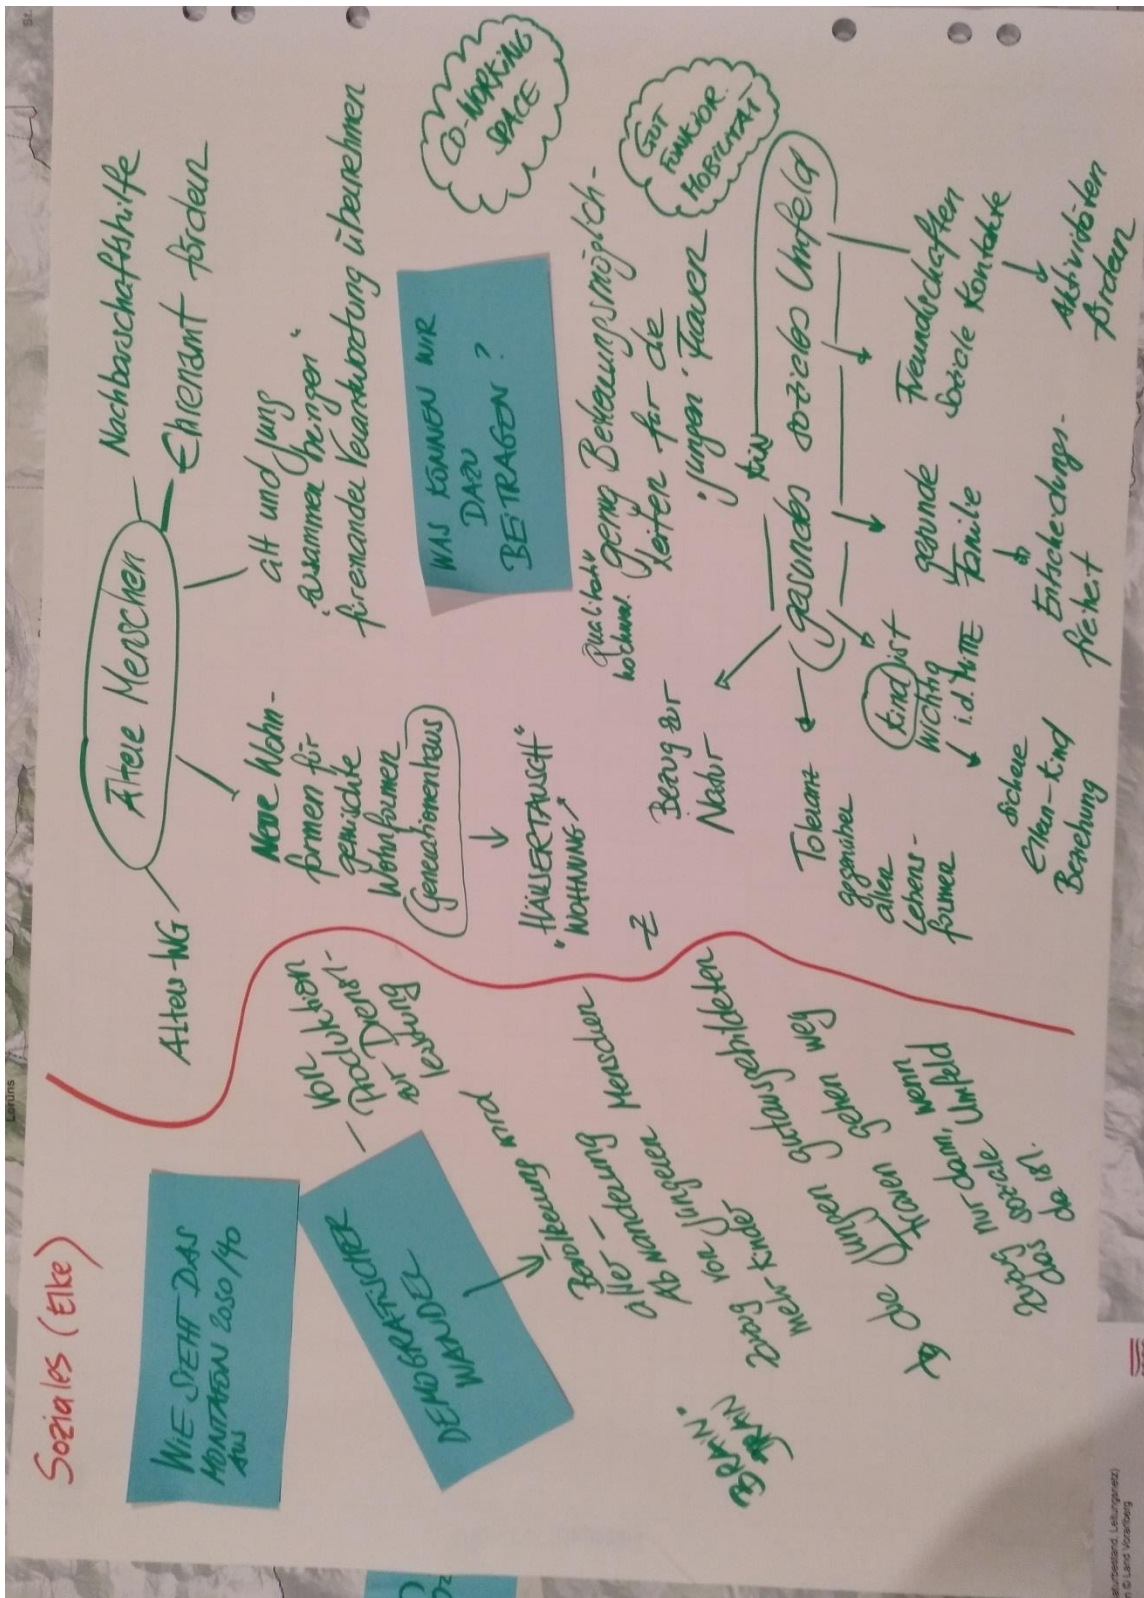 Soziales (Elke)
WIE SIEHT DAS
MONTAFON 2030/40
AUS
DEMOGRAFISCHER
WANDEL
von
Produktion
zur Dienst-
leistung
Bevölkerung wird
älter -
Abwanderung
von jüngeren Menschen
Zuzug von
mehr Kinder
gutausgebildeten
"BRAIN
DRAIN"
die jungen
Frauen gehen weg
Zuzug nur dann, wenn
das soziale Umfeld
da ist.
Ältere Menschen
Alters-WG
Nachbarschaftshilfe
Ehrenamt fördern
alt und jung
"zusammen bringen"
füreinander Verantwortung übernehmen
Neue Wohn-
formen für
gemischte
Wohnformen
Generationenhaus
"HÄUSERTAUSCH"
WOHNUNG
WAS KÖNNEN WIR
DAZU
BEITRAGEN?
CO-WORKING
SPACE
GUT
FUNKTIOR.
MOBILITÄT
Qualitativ
hochw.
genug Betreuungsmöglich-
keiten für die
jungen Frauen
gesundes soziales Umfeld
Bezug zur
Natur
Toleranz
gegenüber
allen
Lebens-
formen
Kind ist
wichtig
i.d. MITTE
sichere
Eltern-Kind
Beziehung
gesunde
Familie
Entscheidungs-
freiheit
Freundschaften
Soziale Kontakte
Aktivitäten
fördern
Loruns
aturbestand, Leitungsnetz)
n © Land Vorarlberg